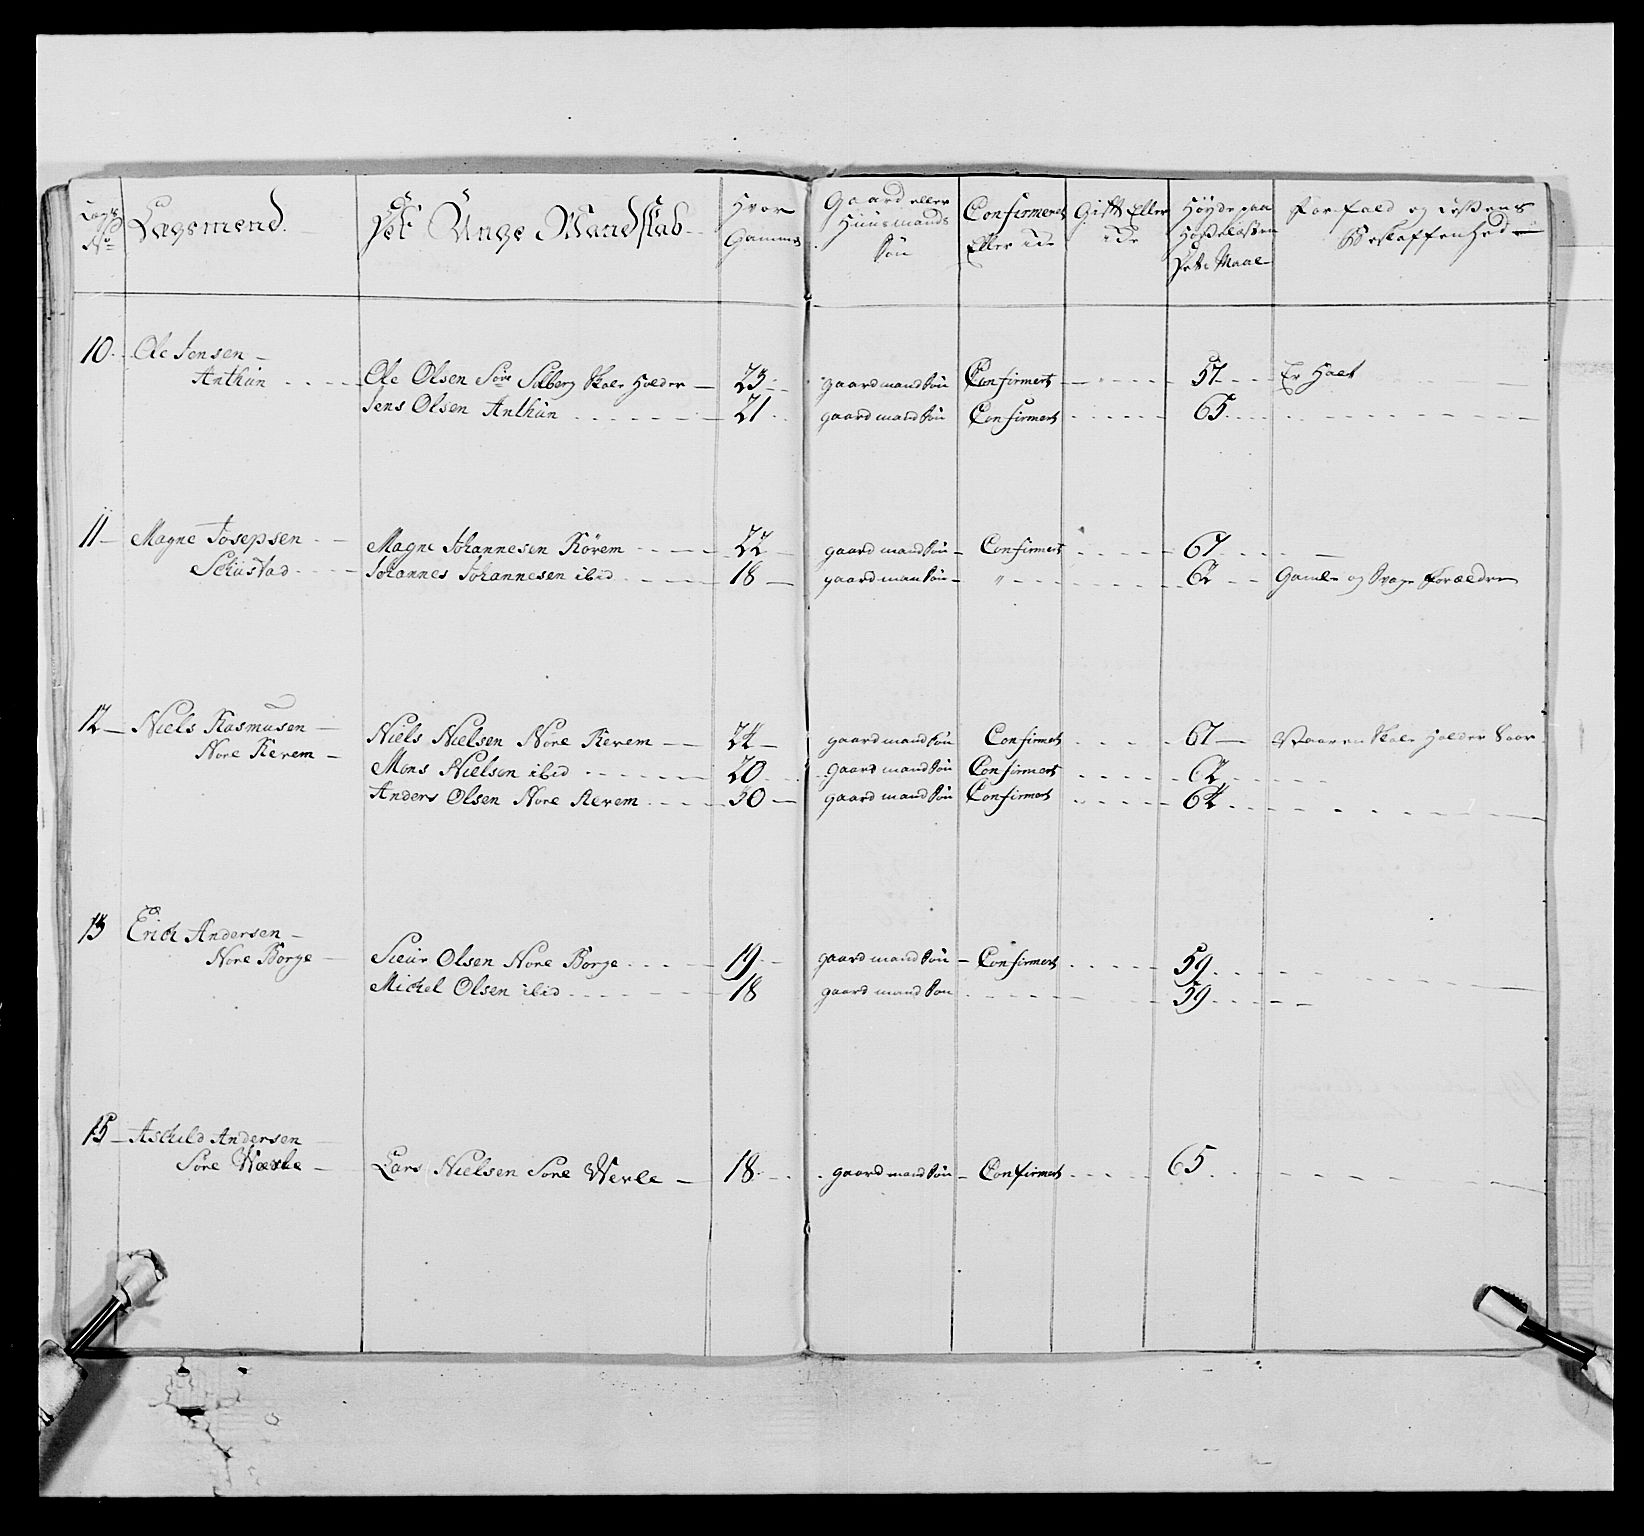 Lægs No
Lægsmend
Det Unge Mandskab
Hvor Gammel
Gaard eller Huusmands Søn
Confirmert Eller Ide
Gift Eller ide
Høyde paa Hoseløsten Putz Maal
Forfald og dessens Beskaffenhed
10. Ole Jensen
Anthun Ole Olsen Søre Solberg Skole Holder 23 gaardmand Søn Confirmert 57 Er Halt
Jens Olsen Anthun 21 gaardmand Søn Confirmert 65
11 Magne Josepsen Magne Johannesen Rørem 22 gaardmand Søn Confirmert 67
Schustad Johannes Johannesen ibid 18 gaardman Søn " 62 Gamle og Svage Forældre
12 Niels Rasmusen Niels Nielsen Nore Rerem 24 gaardmand Søn Confirmert 67 Skole Holder
Nore Rerem Mons Nielsen ibid 20 gaardmand Søn Confirmert 62
Anders Olsen Nore Rerem 30 gaardmand Søn Confirmert 64
13 Erich Andersen
Nore Borge Sieur Olsen Nore Borge 19 gaardmand Søn Confirmert 59
Michel Olsen ibid 18 gaardmand Søn 59
15 Aschild Andersen
Søre Werle Lars Nielsen Søre Werle 18 gaardmand Søn Confirmert 65